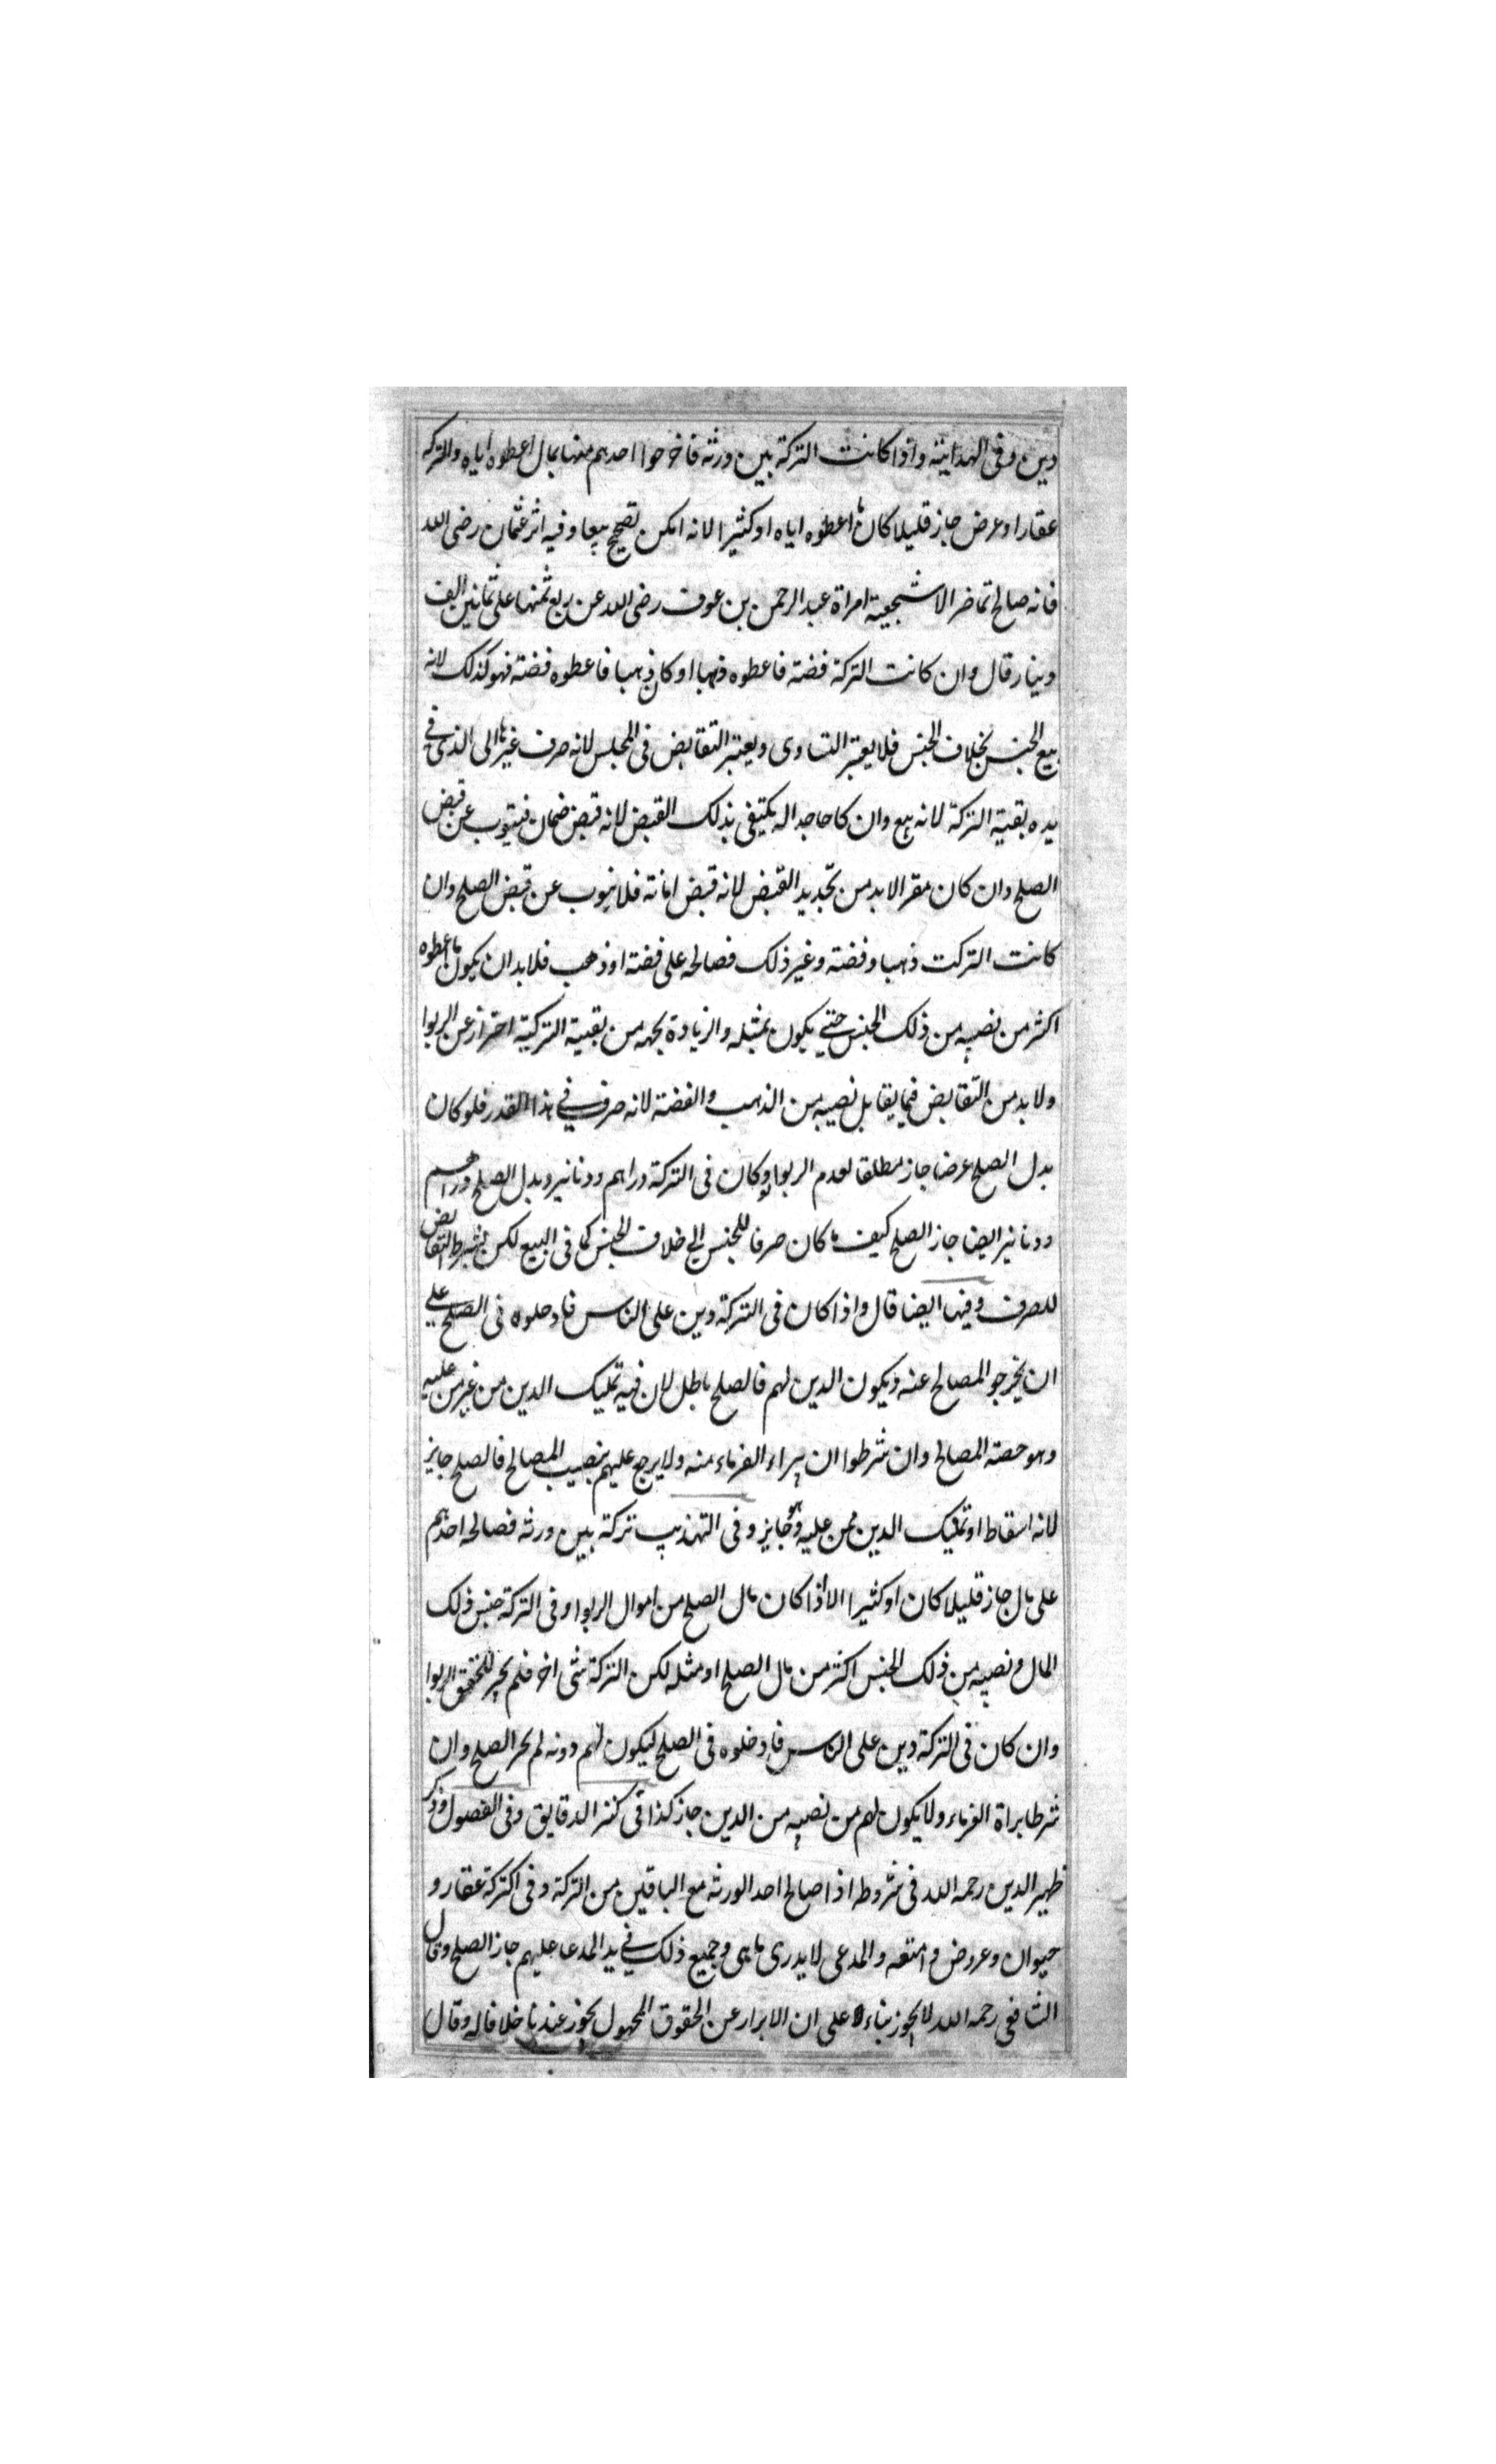 دين وفى الهداية واذا كانت التركة بين ورثه فاخرجوا احدهم منها بمال اعطوه اياه والتركه
عقارا وعرض جاز قليلا كان ما اعطوه اياه او كثيرا لانه امكن تصحيح بيعا وفيه اثر عثمان رضى الله
فانه صالح تماضر الاشجعية امراة عبد الرحمن بن عوف رضى الله عن ربع ثمنها على ثمانين الف
دينار قال وان كانت التركة فضته فاعطوه ذهبا او كان ذهبا فاعطوه فضته فهو كذلك لانه
بيع الجنس بخلاف الجنس فلا يعتبر التساوى ويعتبر التقابض فى المجلس لانه صرف غيرها الى الذى فى
يده بقية التركة لانه بيع وان كا حاجدا له يكتفى بذلك القبض لانه قبض ضمان فينوب عن قبض
الصلح وان كان مقرا لابد من تجديد القبض لانه قبض امانة فلا ينوب عن قبض الصلح وان
كانت التركت ذهبا وفضته وغير ذلك فصالحه على فضته او ذهب فلابد ان يكون ما اعطوه
اكثر من نصيبه من ذلك الجنس حتى يكون بمثله والزيادة بحهه من بقية التركية احتراز عن الربوا
ولابد من التقابض فيما يقابل نصيبه من الذهب والفضة لانه صرف فى هذا القدر فلو كان
بدل الصلح عرضا جاز مطلقا لعدم الربوا ولو كان فى التركة دراهم ودنانير وبدل الصلح دراهم
ودنانير ايضا جاز الصلح كيف ما كان صرفا للجنس الى خلاف الجنس كما فى البيع لكن بشرط التقابض
للصرف وفيها ايضا قال واذا كان فى التركة دين على الناس فادخلوه فى الصلح على
ان يخرجو المصالح عنه ويكون الدين لهم فالصلح باطل لان فيه تمليك الدين من غير من عليه
وهو حصته المصالح وان شرطوا ان يبراء الغرماء منه ولا يرجع عليهم بنصيب المصالح فالصلح جايز
لانه اسقاط او تمليك الدين ممن عليه وهو جايز وفى التهذيب تركة بين ورثه فصالحه احدهم
على مال جاز قليلا كان او كثيرا الا اذا كان مال الصلح من اموال الربوا وفى التركة جنس ذلك
المال ونصيبه من ذلك الجنس اكثر من مال الصلح او مثله لكن التركة شى اخر فلم يجز لتحقق الربوا
وان كان فى التركة دين على الناس فادخلوه فى الصلح ليكون لهم دونه لم يجز الصلح وان
شرطا براة الغرماء ولا يكون لهم من نصيبه من الدين جاز كذا فى كنز الدقايق وفى الفصول وذكر
ظهير الدين رحمه الله فى شروطه اذا صالح احد الورثه مع الباقين من التركة وفى اكتركة عقار و
حيوان وعروض وامتعه والمدعى لا يدرى ما هى وجميع ذلك فى يد المدعا عليهم جاز الصلح وقال
الشافعى رحمه الله لا يجوز بناء على ان الابرار عن الحقوق المجهول يجوز عندنا خلافا له وقال